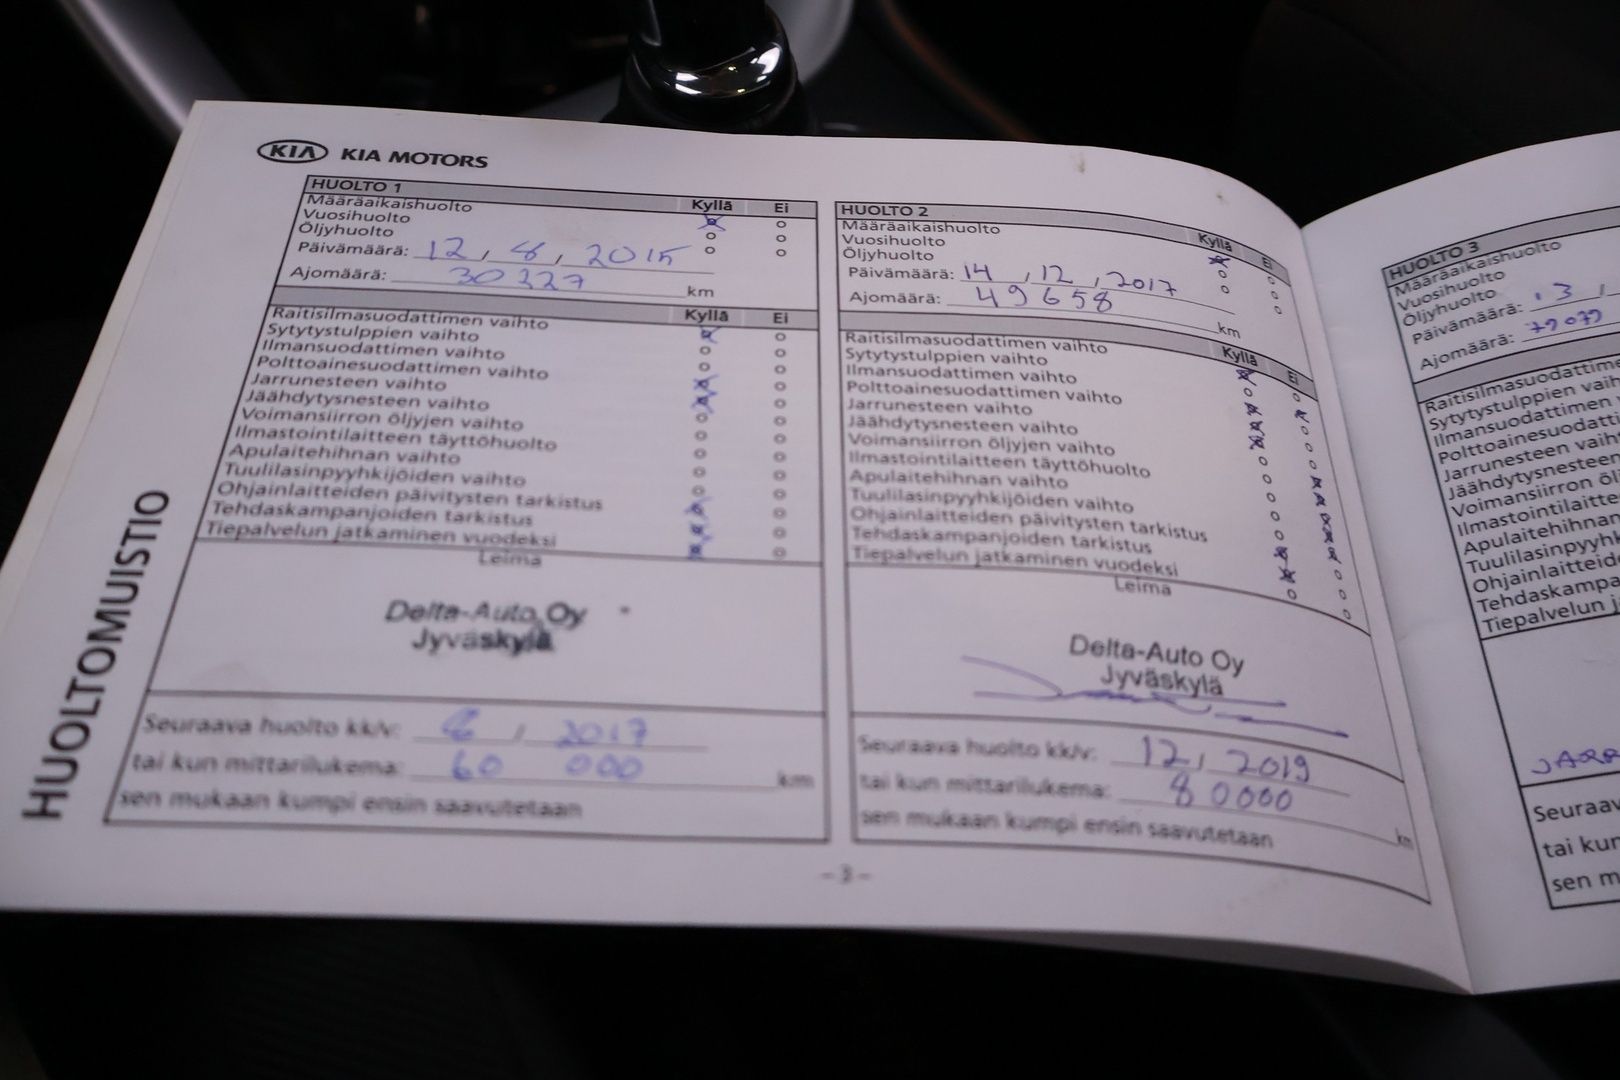 KIA KIA MOTORS
HUOLTOMUISTIO
HUOLTO 1
Kyllä Ei
Määräaikaishuolto
Vuosihuolto
Öljyhuolto
Päivämäärä: 12, 8, 2015
Ajomäärä: 30327 km
Kyllä Ei
Raitisilmasuodattimen vaihto
Sytytystulppien vaihto
Ilmansuodattimen vaihto
Polttoainesuodattimen vaihto
Jarrunesteen vaihto
Jäähdytysnesteen vaihto
Voimansiirron öljyjen vaihto
Ilmastointilaitteen täyttöhuolto
Apulaitehihnan vaihto
Tuulilasinpyyhkijöiden vaihto
Ohjainlaitteiden päivitysten tarkistus
Tehdaskampanjoiden tarkistus
Tiepalvelun jatkaminen vuodeksi
Leima
Delta-Auto Oy
Jyväskylä
Seuraava huolto kk/v: 8, 2017
tai kun mittarilukema: 60 000 km
sen mukaan kumpi ensin saavutetaan
HUOLTO 2
Kyllä Ei
Määräaikaishuolto
Vuosihuolto
Öljyhuolto
Päivämäärä: 14, 12, 2017
Ajomäärä: 49658 km
Kyllä Ei
Raitisilmasuodattimen vaihto
Sytytystulppien vaihto
Ilmansuodattimen vaihto
Polttoainesuodattimen vaihto
Jarrunesteen vaihto
Jäähdytysnesteen vaihto
Voimansiirron öljyjen vaihto
Ilmastointilaitteen täyttöhuolto
Apulaitehihnan vaihto
Tuulilasinpyyhkijöiden vaihto
Ohjainlaitteiden päivitysten tarkistus
Tehdaskampanjoiden tarkistus
Tiepalvelun jatkaminen vuodeksi
Leima
Delta-Auto Oy
Jyväskylä
Seuraava huolto kk/v: 12, 2019
tai kun mittarilukema: 80000 km
sen mukaan kumpi ensin saavutetaan
- 3 -
HUOLTO 3
Määräaikaishuolto
Vuosihuolto
Öljyhuolto
Päivämäärä: 13,
Ajomäärä: 79079
Raitisilmasuodattime
Sytytystulppien vaih
Ilmansuodattimen
Polttoainesuodatt
Jarrunesteen vaih
Jäähdytysnesteen
Voimansiirron öl
Ilmastointilaitte
Apulaitehihnan
Tuulilasinpyyhk
Ohjainlaitteid
Tehdaskampa
Tiepalvelun j
JARR
Seuraav
tai kun
sen m